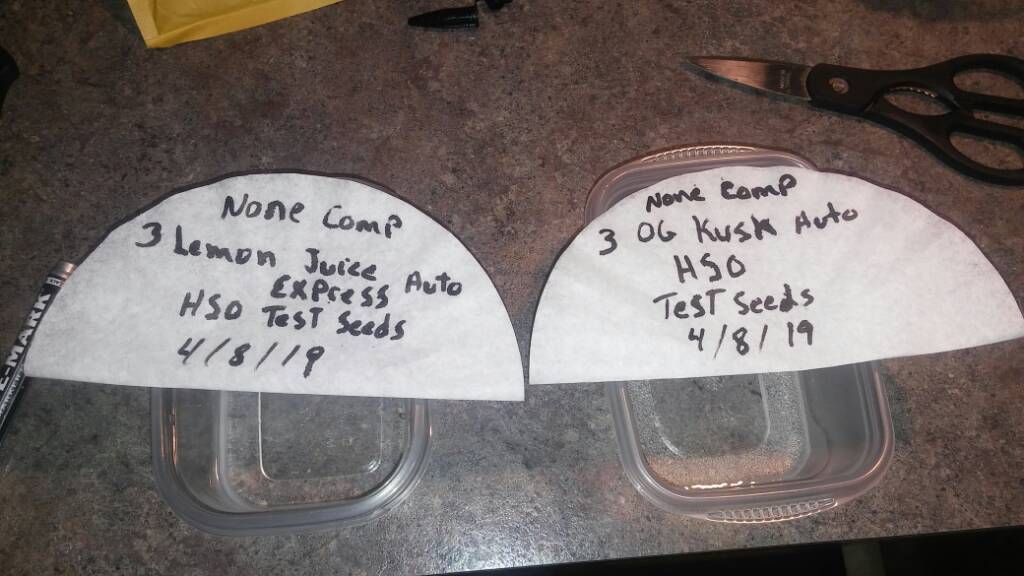 None Comp
3 Lemon Juice
Express Auto
HSO Test Seeds
4/8/19
None Comp
3 OG Kush Auto
HSO
Test Seeds
4/8/19
E-MARK